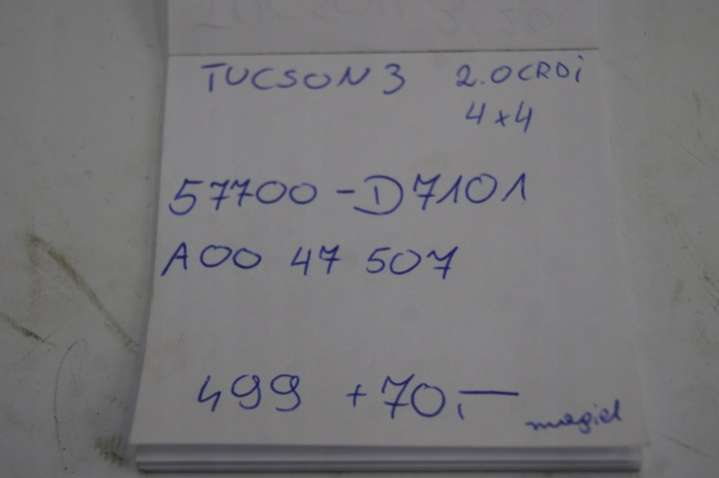 TUCSON 3 2.0CRDi
4x4
57700-D7101
A00 47 507
499 +70,—
magiel